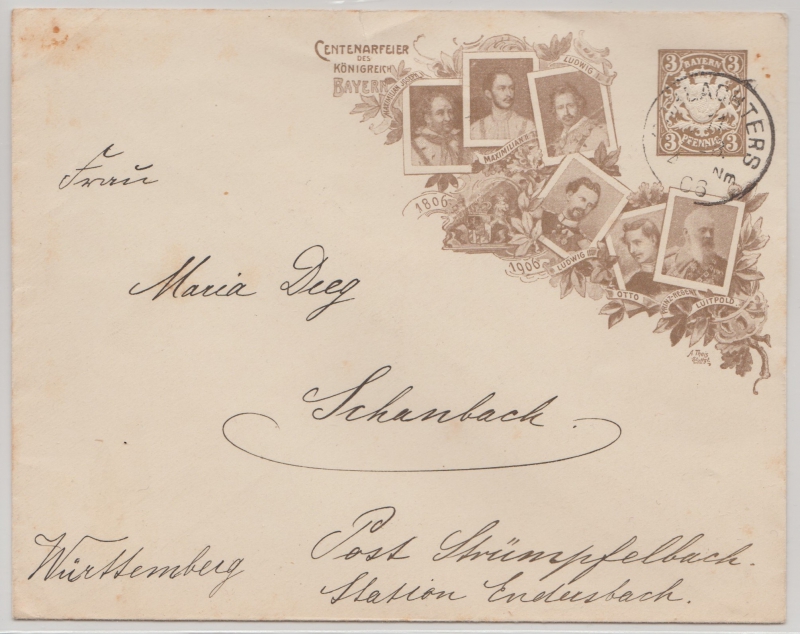 CENTENARFEIER
DES
KÖNIGREICH
BAYERN
MAXIMILIAN JOSEPH
MAXIMILIAN II
LUDWIG I
3 BAYERN 3
3 PFENNIG 3
06
1806
1906
LUDWIG II
OTTO
PRINZ-REGENT
LUITPOLD
Frau
Maria Deeg
Schanbach.
Württemberg
Post Strümpfelbach.
Station Endersbach.